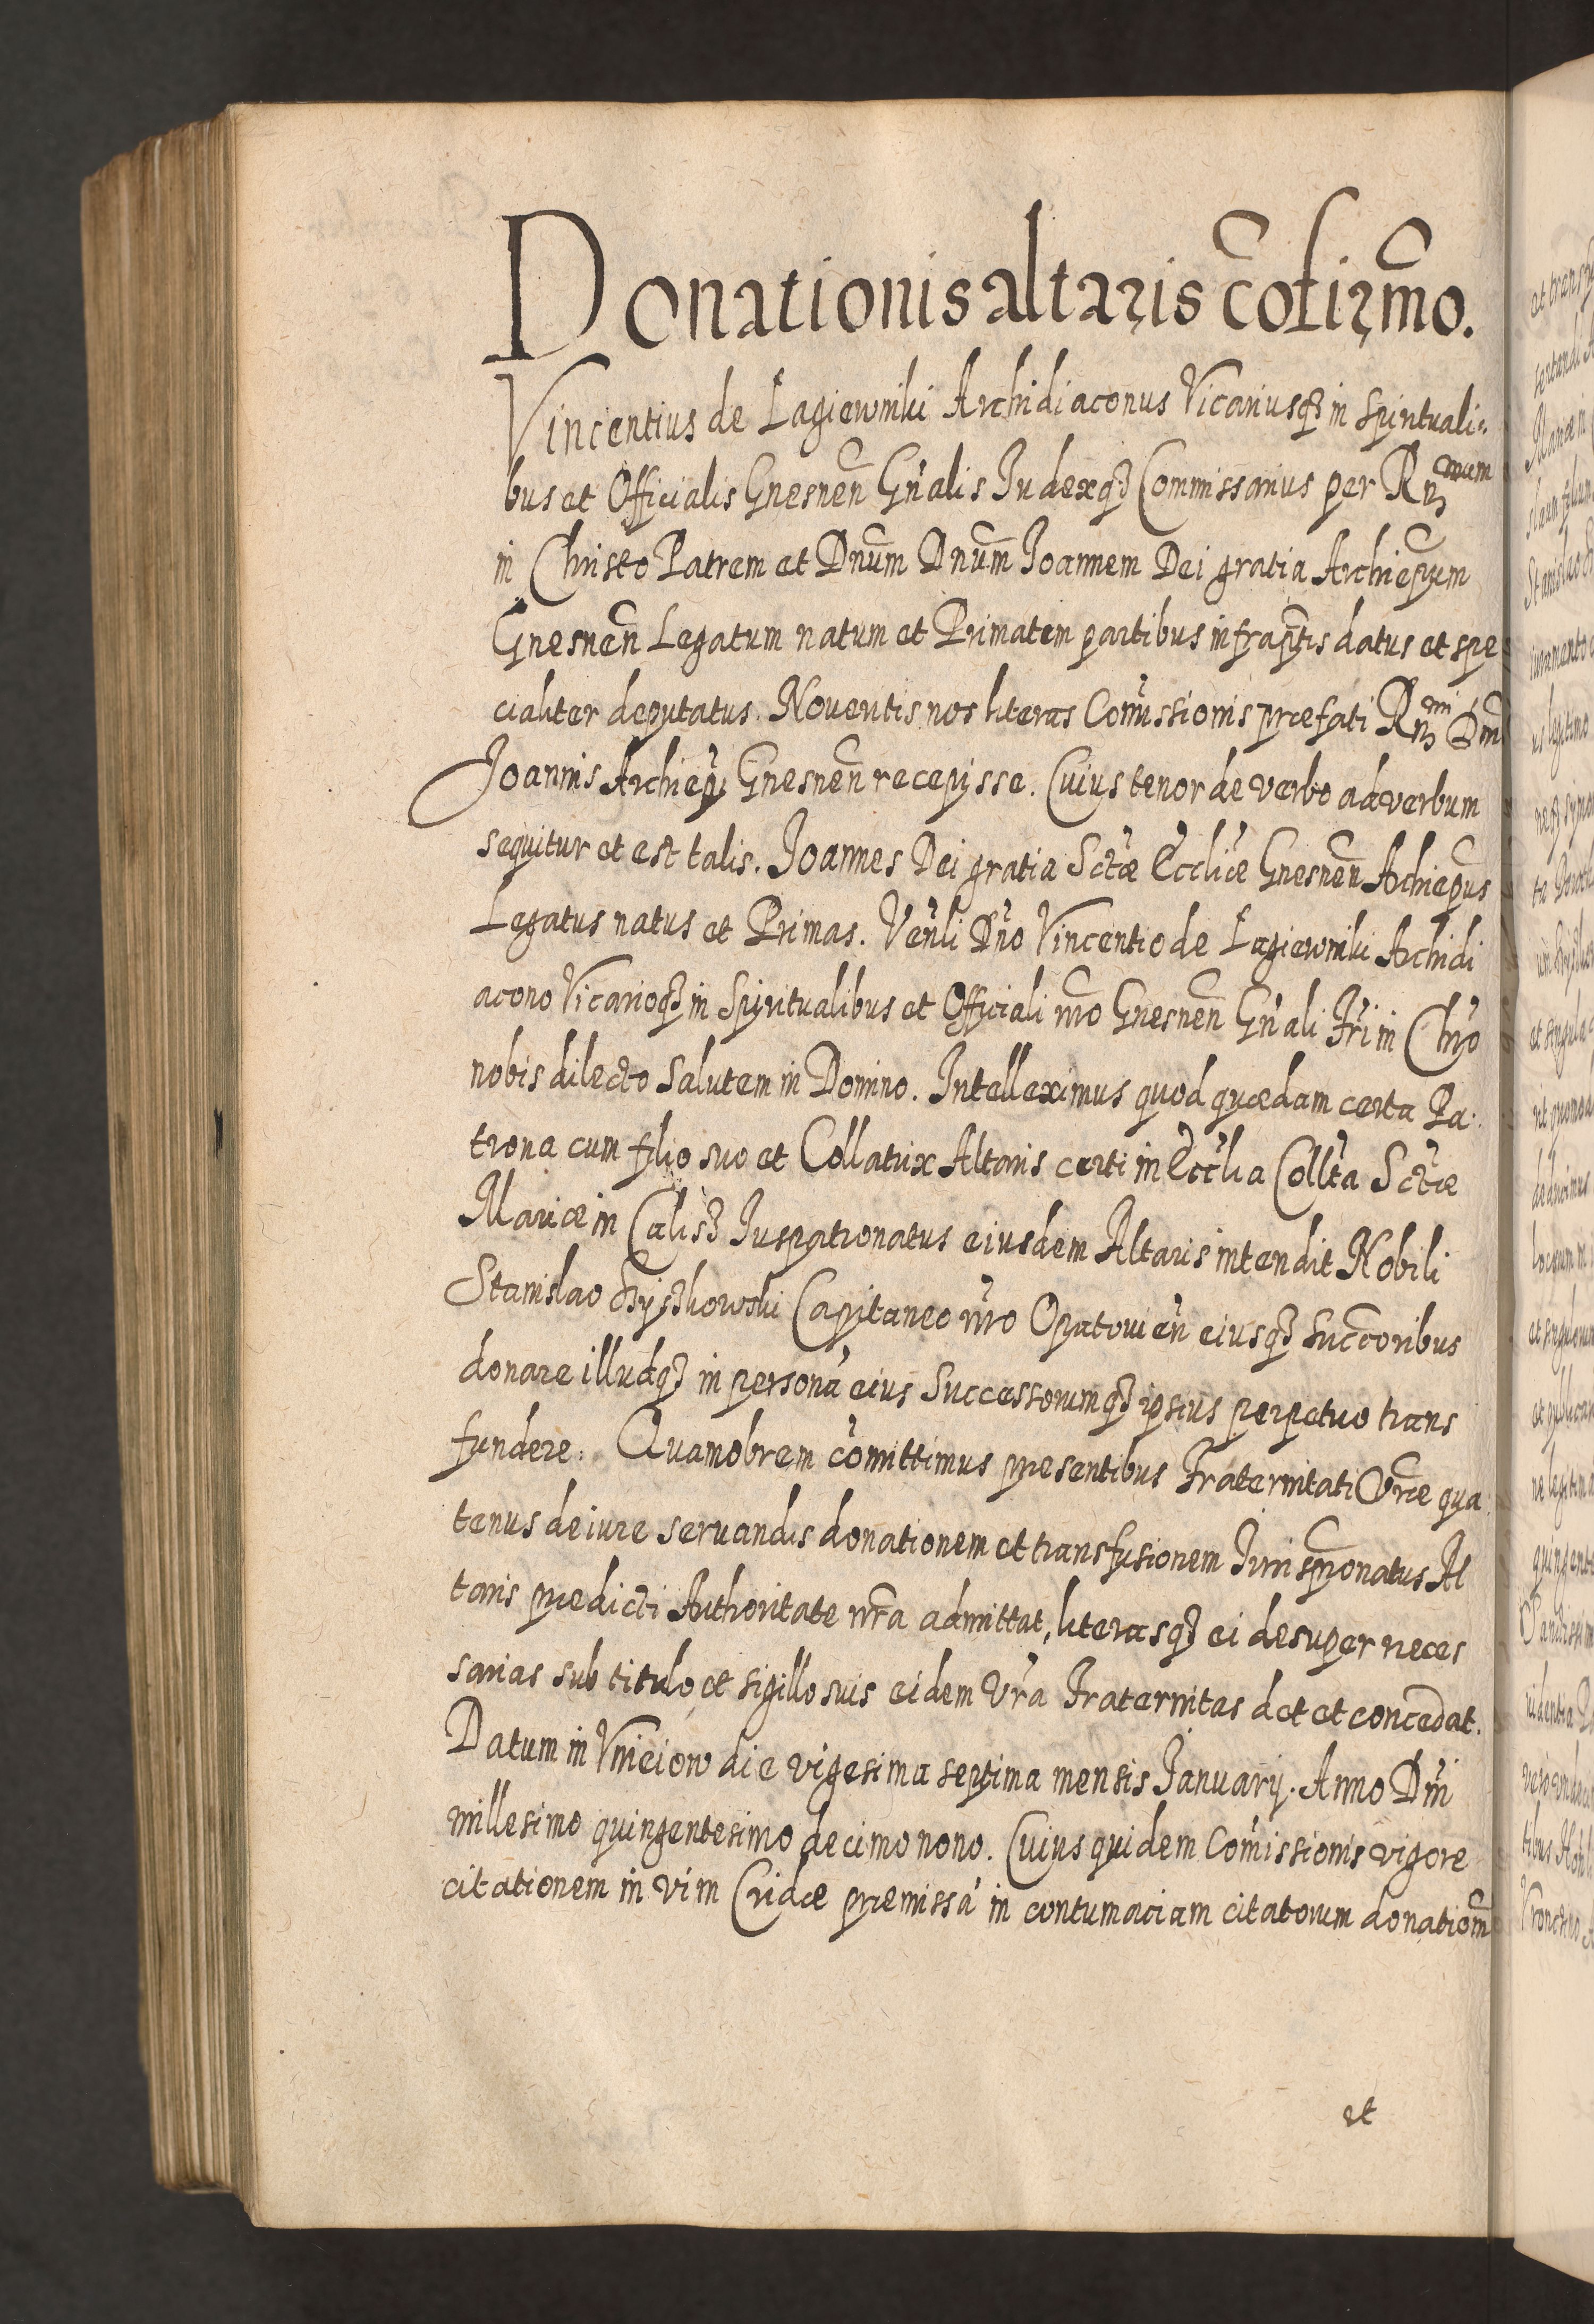 Donationis altaris cōfirm̄o.
Vincentius de Lagiewniki Archidiaconus Vicariusq3 in Spirituali=
bus et Officialis Gnesnen̄ Gn̄alis Iudexq3 Commissarius per Rn̄dmum
in Christo Patrem et Dnūm Dnūm Joannem Dei gratia Archiep̄um
Gnesnen̄ Legatum natum et Primatem partibus infrap̄tis datus et spe
cialiter deputatus. Noveritis nos literas Com̄issionis præfati Rn̄dmi Dn̄i
Joannis Archiep̄i Gnesnen̄ recepisse. Cuius tenor de verbo ad verbum
sequitur et est talis. Joannes Dei gratia Sctæ Eccliæ Gnesnen̄ Achiep̄us
Legatus natus et Primas. Ven̄li Dn̄o Vincentio de Lagiewniki Archidi
acono Vicarioq3 in Spiritualibus et Officiali nr̄o Gnesnen̄ Gn̄ali Fr̄i in Chr̄o
nobis dilecto Salutem in Domino. Intelleximus quod quædam certa Pa=
trona cum filio suo et Collatrix Altaris certi in Ecc̄lia Collt̄a Sctæ
Mariæ in Calis3 Juspatronatus eiusdem Altaris intendit Nobili
Stanislao Capitaneo nr̄o Opatovien̄ eiusq3 Succ̄oribus
donare illudq3 in personā eius Successorumq3 ipsius perpetuo trans
fundere. Quamobrem com̄ittimus præsentibus Fraternitati Vr̄æ qua
tenus de iure servandis donationem et transfusionem Jurisp̄ronatus Al
taris prædicti Authoritate nr̄a admittat, literasq3 ei desuper neces
sarias sub titulo et sigillo suis eidem Vr̄a Fraternitas det et concedat.
Datum in Vnieiow die vigesima septima mensis January. Anno Dn̄i
millesimo quingentesimo decimo nono. Cuius quidem Com̄issionis vigore
citationem in vim Cridæ præmissā in contumaciam citatorum donationm̄
et